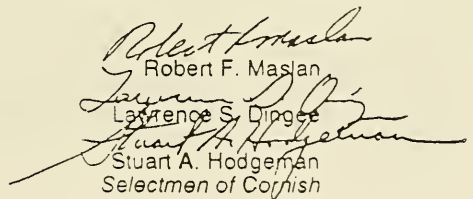 Robert F. Maslan
Robert F. Maslan
Lawrence S. Dingee
Lawrence S. Dingee
Stuart A. Hodgeman
Stuart A. Hodgeman
Selectmen of Cornish